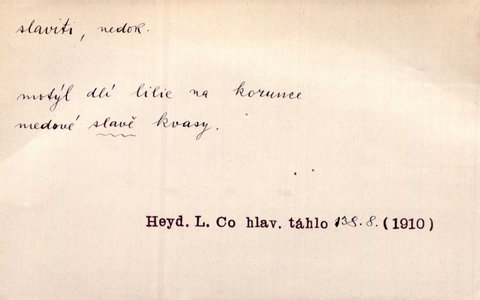 slaviti, nedok.
motýl dlí lilie na korunce
medové slavě kvasy.
Heyd. L. Co hlav. táhlo 138.8. (1910)